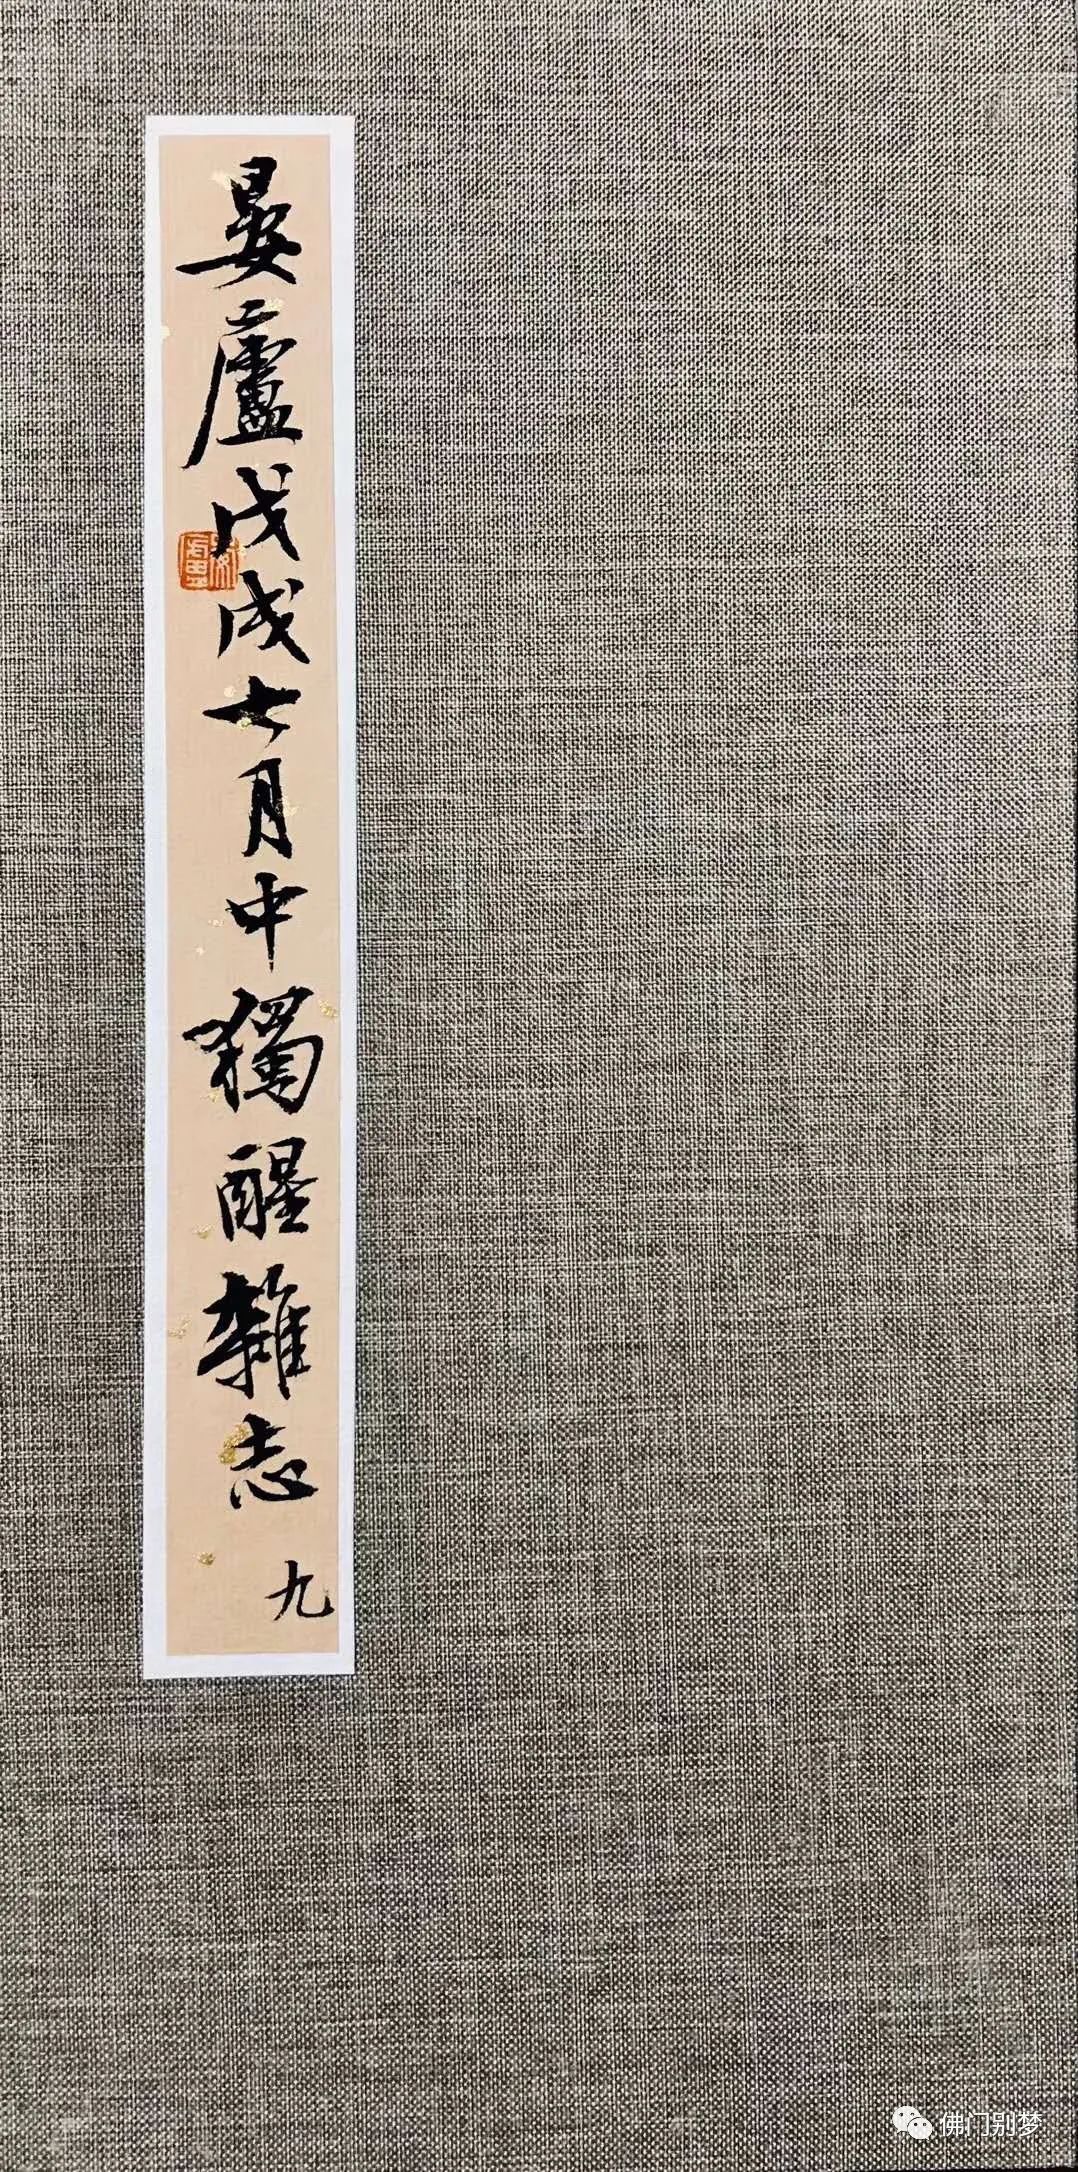 晏廬戊戌七月中獨醒雜志
九
佛门别梦